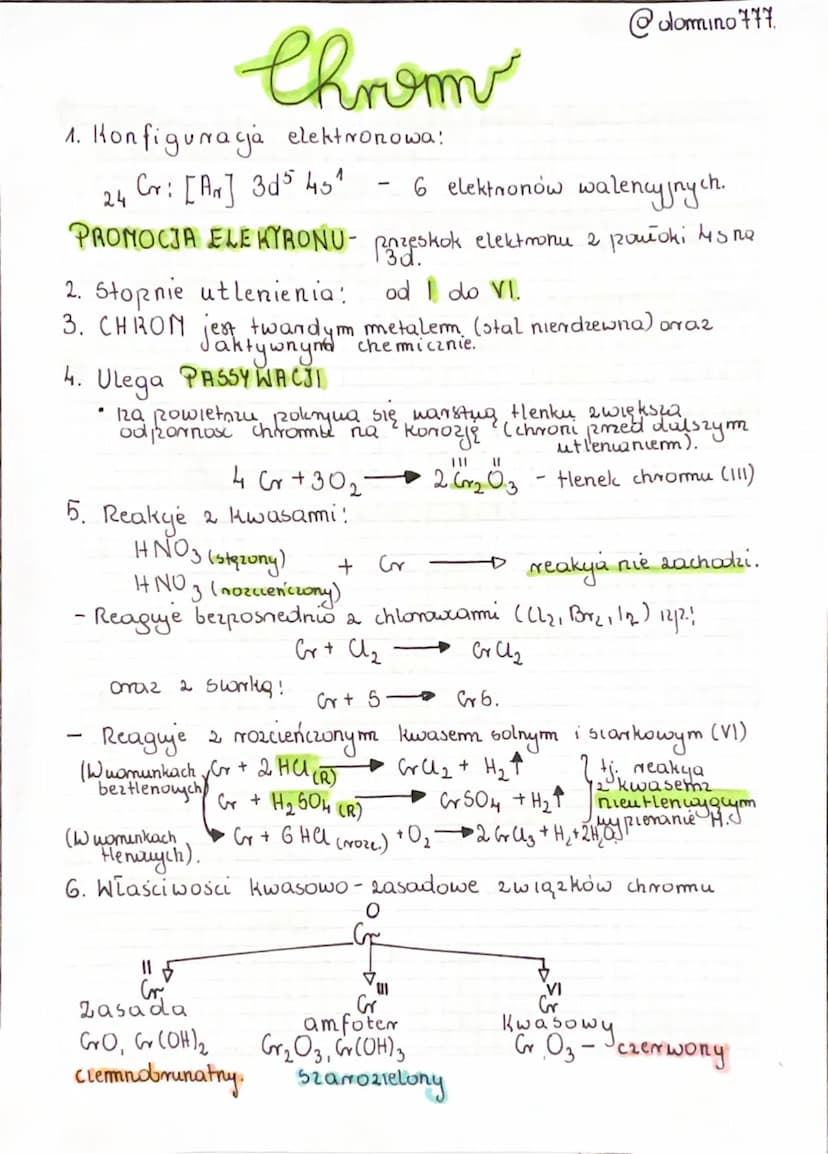 @domino777.
Chrom
1. Konfiguracja elektronowa:
24 Cr: [Ar] 3d⁵ 4s¹ - 6 elektronów walencyjnych.
PROMOCJA ELEKTRONU - przeskok elektronu z powłoki 4s na
3d.
2. Stopnie utlenienia: od I do VI.
3. CHROM jest twardym metalem (stal nierdzewna) oraz
aktywnym chemicznie.
4. Ulega PASSYWACJI
• na powietrzu pokrywa się warstwą tlenku zwiększa
odporność chromu na korozję (chroni przed dalszym
utlenianiem).
4 Cr + 3O₂ → 2 Cr₂O₃ - tlenek chromu (III)
III II
5. Reakcje z kwasami:
HNO₃ (stężony)
+ Cr → reakcja nie zachodzi.
HNO₃ (rozcieńczony)
- Reaguje bezpośrednio z chlorowcami (Cl₂, Br₂, I₂) np.:
Cr + Cl₂ → CrCl₂
oraz z siarką: Cr + S → CrS.
- Reaguje z rozcieńczonym kwasem solnym i siarkowym (VI)
(W warunkach beztlenowych) Cr + 2HCl (R) → CrCl₂ + H₂↑
Cr + H₂SO₄ (R) → CrSO₄ + H₂↑
} tj. reakcja
z kwasem
nieutleniającym
wypieranie H.
(W warunkach tlenowych). Cr + 6HCl (rozc.) + O₂ → 2CrCl₃ + H₂ + 2H₂O
6. Właściwości kwasowo-zasadowe związków chromu
0
Cr
II III VI
Cr Cr Cr
zasada amfoter kwasowy
CrO, Cr(OH)₂ Cr₂O₃, Cr(OH)₃ CrO₃ - czerwony
ciemnobrunatny. szarozielony